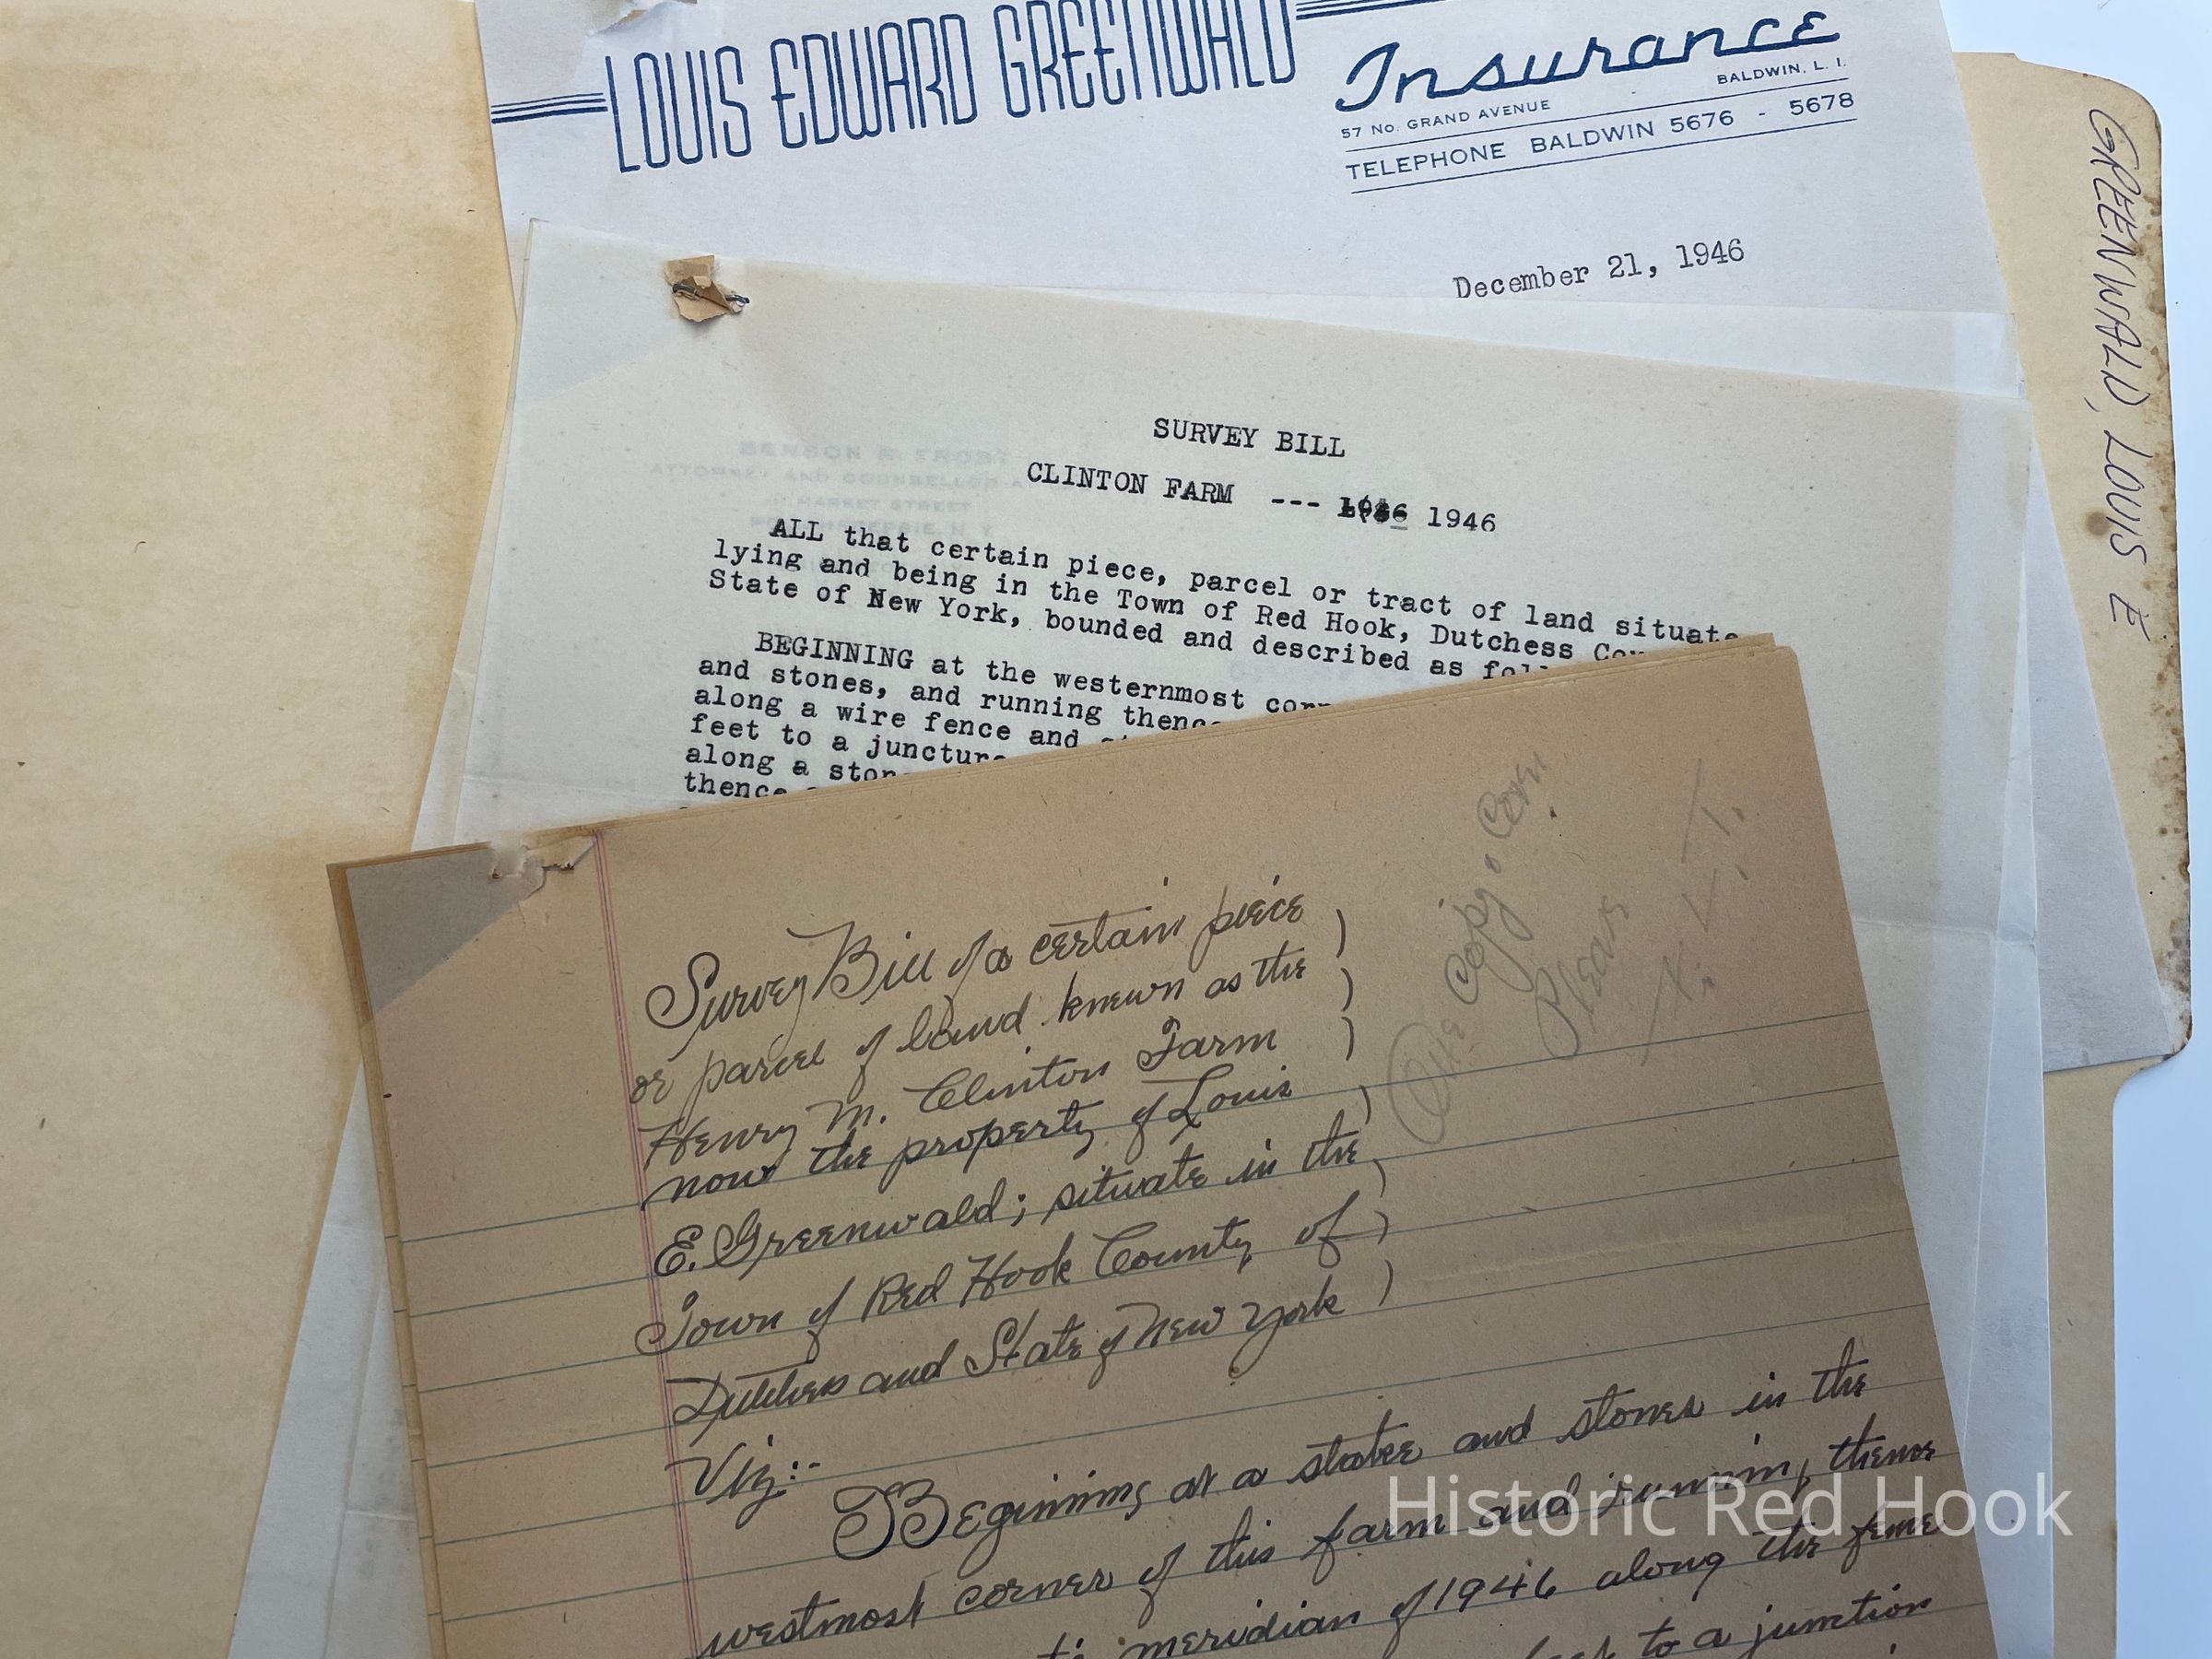 LOUIS EDWARD GREENWALD
Insurance
BALDWIN, L. I.
57 No. GRAND AVENUE
TELEPHONE BALDWIN 5676 - 5678
December 21, 1946
GREENWALD, LOUIS E
BENSON R. FROST
ATTORNEY AND COUNSELLOR
MARKET STREET
SURVEY BILL
CLINTON FARM --- 1946
ALL that certain piece, parcel or tract of land situate
lying and being in the Town of Red Hook, Dutchess
State of New York, bounded and described as
BEGINNING at the westernmost
and stones, and running
along a wire fence and
feet to a
along a
thence
Survey Bill of a certain piece )
or parcel of land known as the )
Henry M. Clinton Farm )
now the property of Louis )
E. Greenwald; situate in the )
Town of Red Hook County of )
Dutchess and State of New York )
Viz:-
One Copy
Please
Beginning at a stake and stones in the
westmost corner of this farm and running thence
meridian of 1946 along the fence
to a junction
Historic Red Hook